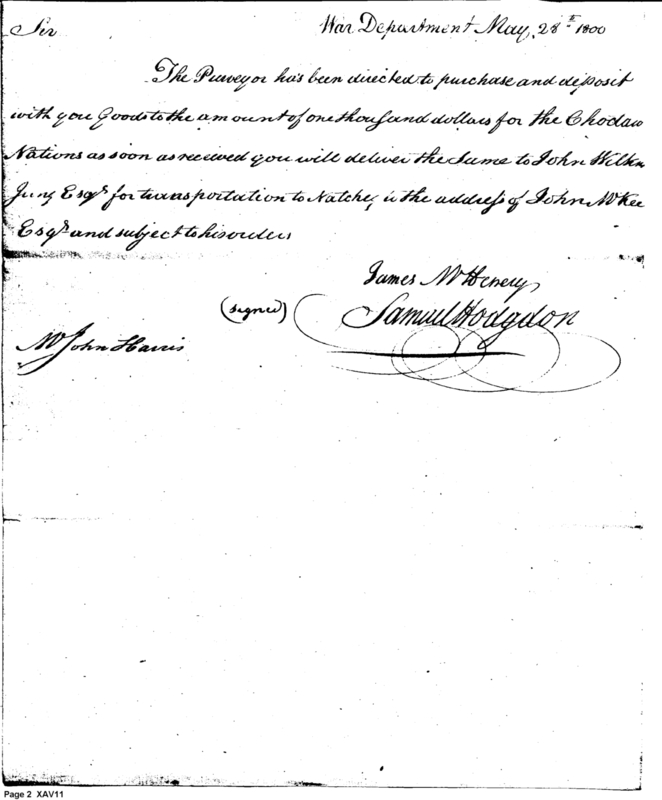 Sir War Department May, 28th 1800
The Purveyor has been directed to purchase and deposit
with you Goods to the amount of one thousand dollars for the Choctaw
Nations as soon as received you will deliver the Same to John Wilkins
Junr Esqr for transportation to Natchez to the address of John McKee
Esqr and subject to his orders
James McHenry
(signed) Samuel Hodgdon
Mr John Harris
Page 2 XAV11